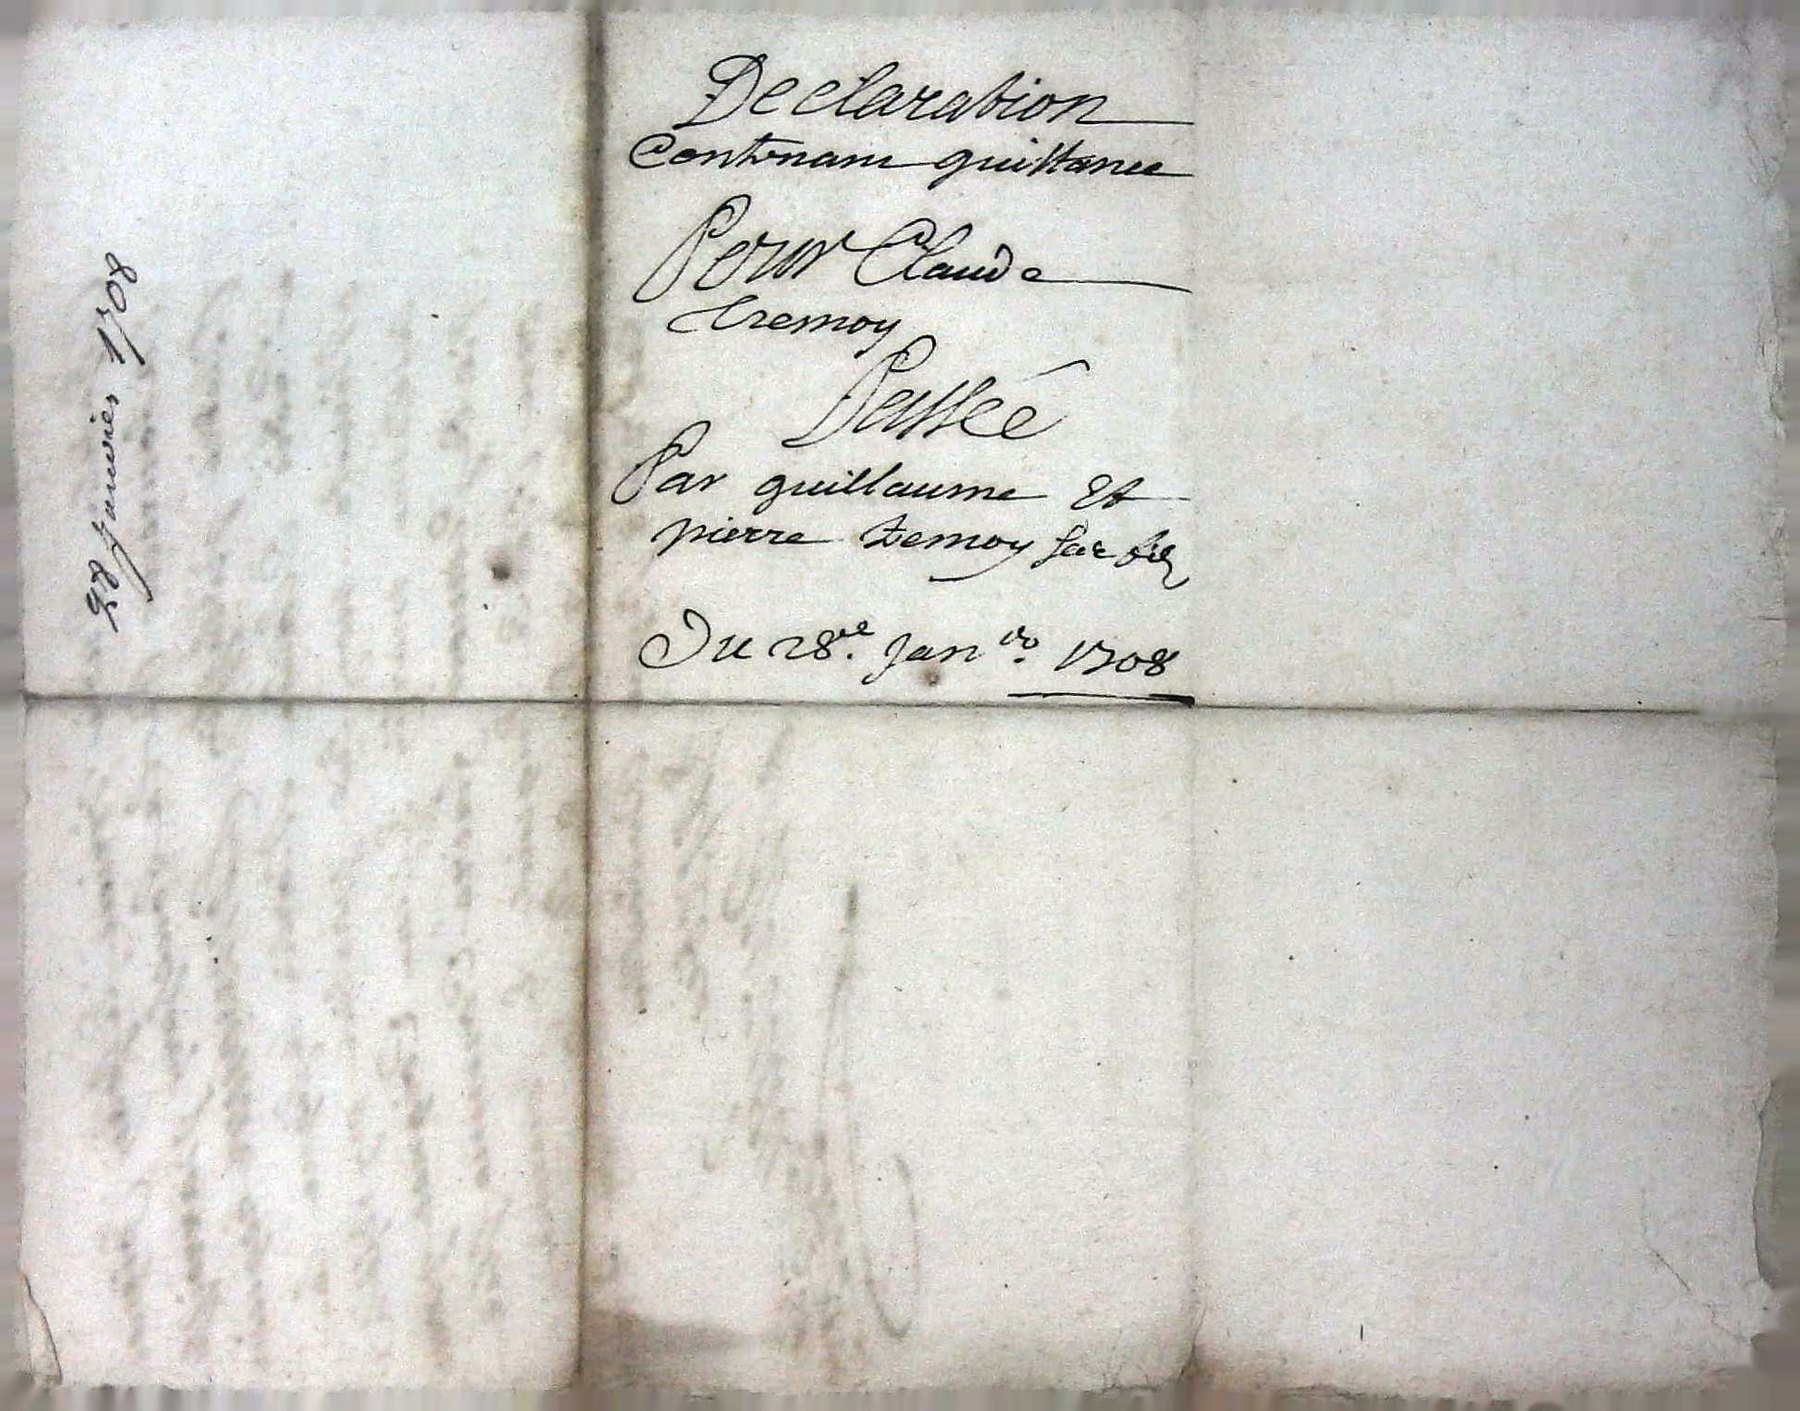 Declaration
Contenant quittance
Pour Claude
tremoy
Passée
Par guillaume Et
pierre tremoy
Du 28.e Jan.ro 1708
28 Janvier 1708